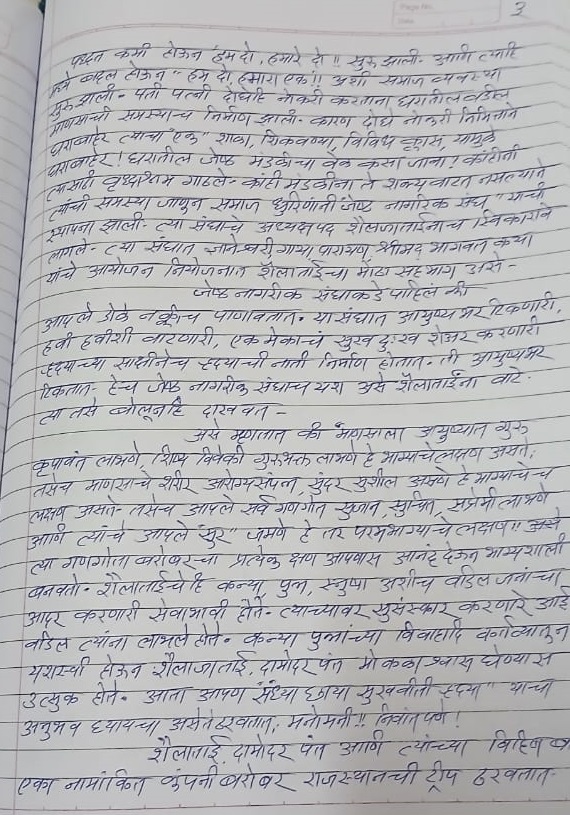 Page No.
Date
3
पध्दत कमी होऊन "हम दो, हमारे दो"!! सुरू झाली. आणि त्याहि
मध्ये बदल होऊन "हम दो, हमारा एक"!! अशी समाज व्यवस्था
सुरू झाली. पती पत्नी दोघेहि नोकरी करताना घरातील वडिल
माणसांची समस्याच निर्माण झाली. कारण दोघे नोकरी निमित्ताने
घराबाहेर त्यांचा "एक" शाळा, शिकवण्या, विविध क्लास, यामुळे
घराबाहेर! घरातील जेष्ठ मंडळीचा वेळ कसा जावा? कांहीनी
त्यासाठी वृध्दाश्रम गाठले. कांही मंडळीना ते शक्य वाटत नसल्याने
त्यांची समस्या जाणून समाज धुरिणांनी "जेष्ठ नागरिक संघ" यांची
स्थापना झाली. त्या संघाचे अध्यक्षपद शैलजाताईनाच स्विकारावे
लागले. त्या संघात ज्ञानेश्वरी, गाथा, पारायण, श्रीमद भागवत कथा
यांचे आयोजन नियोजनात शैलाताईचा मोठा सहभाग असे.
जेष्ठ नागरीक संघाकडे पाहिलं की
आपले डोळे नक्कीच पाणावतात. या संघात आयुष्यभर टिकणारी,
हवी हवीशी वाटणारी, एकमेकाचं सुख दुःख शेअर करणारी
हृदयाच्या साक्षीनेच हृदयाची नाती निर्माण होतात. ती आयुष्यभर
टिकतात. हेच जेष्ठ नागरीक संघाच यश असे शैलाताईना वाटे.
त्या तसे बोलूनहि दाखवत -
असे म्हणतात की माणसाला आयुष्यात गुरू
कृपावंत लाभणे शिष्य विवेकी गुरूभक्त लाभणे हे भाग्याचे लक्षण असते,
तसेच माणसाचे शरीर आरोग्यसंपन्न, सुंदर सुशील असणे हे भाग्याचेच
लक्षण असते. तसेच आपले सर्व गणगोत सुजान, सुचित, सप्रेमी लाभणे
आणि त्यांचे आपले "सुर" जमणे हे तर परमभाग्याचे लक्षण!! असे
त्या गणगोता बरोबरचा प्रत्येक क्षण आपणास आनंद देऊन भाग्यशाली
बनवतो. शैलाताईचेहि कन्या, पुत्र, स्नुषा अशीच वडिल जनांचा
आदर करणारी सेवाभावी होते. त्याच्यावर सुसंस्कार करणारे आई
वडिल त्यांना लाभले होते. कन्या पुत्रांच्या विवाहादि कर्तव्यातून
यशस्वी होऊन शैलाजाताई, दामोदर पंत मोकळा श्वास घेण्यास
उत्सुक होते. आता आपण "संध्या छाया सुखवीती हृदया" याचा
अनुभव घ्यायचा असे ते ठरवतात, मनोमनी!! निवांतपणे!
शैलाताई, दामोदर पंत आणि त्यांच्या विहिण
एका नामांकित कंपनी बरोबर राजस्थानची ट्रीप ठरवतात.